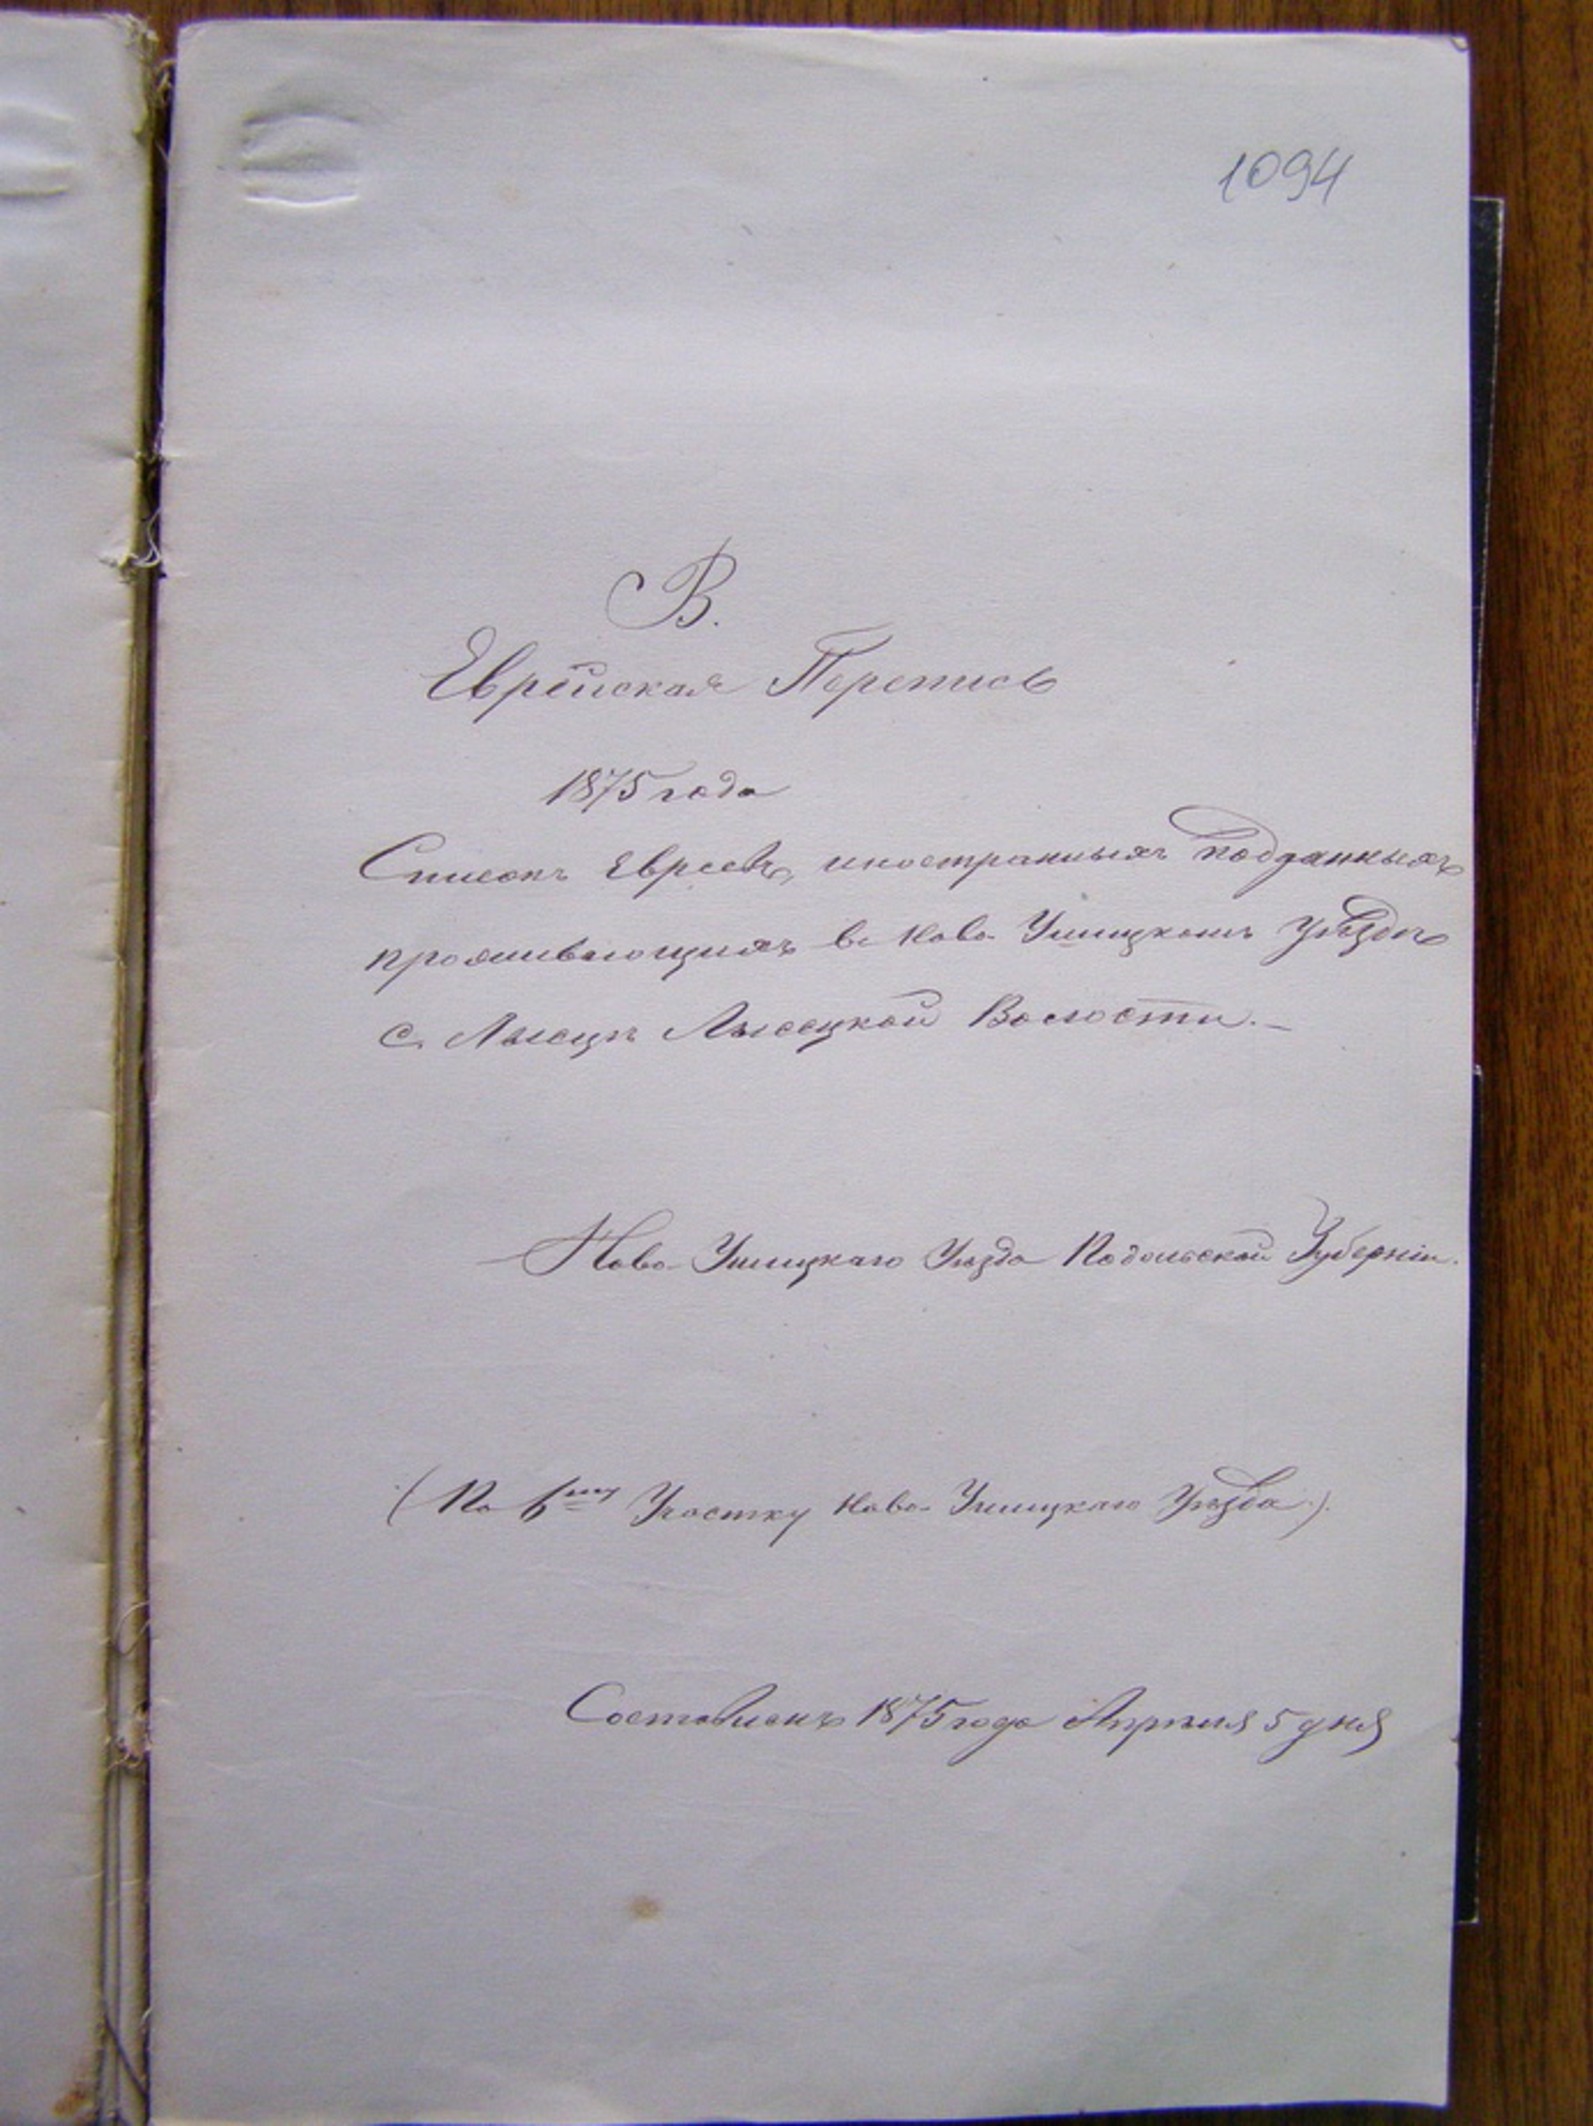 1094
В.
Еврейская Перепись
1875 года
Списокъ Евреевъ, иностранныхъ подданныхъ
проживающихъ въ Ново-Ушицкомъ Уѣздѣ
с. Лысцѣ Лысецкой Волости.-
Ново-Ушицкаго Уѣзда Подольской Губерніи.
(По 6му Участку Ново-Ушицкаго Уѣзда.).
Составленъ 1875 года Апрѣля 5 дня